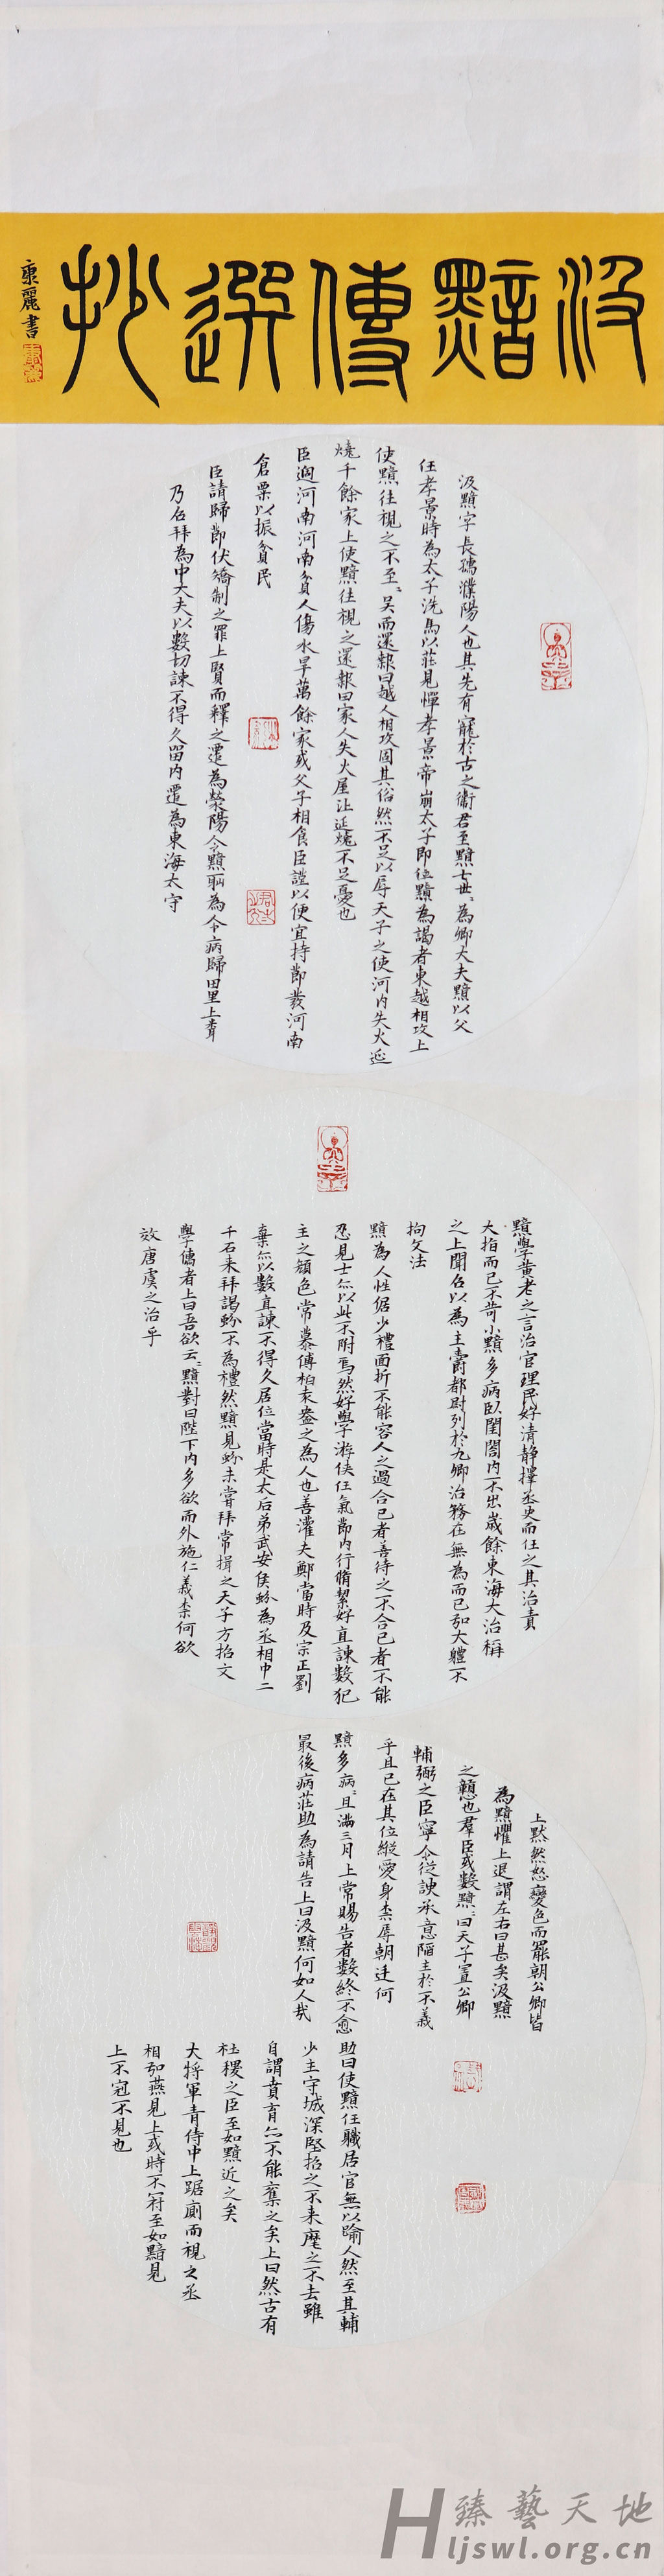 汲黯傳選抄
康麗書
汲黯字長孺濮陽人也其先有寵於古之衛君至黯七世〻為卿大夫黯以父
任孝景時為太子洗馬以莊見憚孝景帝崩太子即位黯為謁者東越相攻上
使黯往視之不至〻吳而還報曰越人相攻固其俗然不足以辱天子之使河內失火延
燒千餘家上使黯往視之還報曰家人失火屋比延燒不足憂也
臣過河南河南貧人傷水旱萬餘家或父子相食臣謹以便宜持節發河南
倉粟以振貧民
臣請歸節伏矯制之罪上賢而釋之遷為滎陽令黯恥為令病歸田里上聞
乃召拜為中大夫以數切諫不得久留內遷為東海太守
黯學黃老之言治官理民好清靜擇丞史而任之其治責
大指而已不苛小黯多病臥閨閤內不出歲餘東海大治稱
之上聞召以為主爵都尉列於九卿治務在無為而已弘大體不
拘文法
黯為人性倨少禮面折不能容人之過合己者善待之不合己者不能
忍見士亦以此不附焉然好學游俠任氣節內行脩絜好直諫數犯
主之顏色常慕傅柏袁盎之為人也善灌夫鄭當時及宗正劉
棄亦以數直諫不得久居位當時是太后弟武安侯蚡為丞相中二
千石來拜謁蚡不為禮然黯見蚡未嘗拜常揖之天子方招文
學儒者上曰吾欲云〻黯對曰陛下內多欲而外施仁義柰何欲
效唐虞之治乎
上默然怒變色而罷朝公卿皆
為黯懼上退謂左右曰甚矣汲黯
之戇也羣臣或數黯〻曰天子置公卿
輔弼之臣寧令從諛承意陷主於不義
乎且已在其位縱愛身柰辱朝廷何
黯多病〻且滿三月上常賜告者數終不愈
最後病莊助為請告上曰汲黯何如人哉
助曰使黯任職居官無以踰人然至其輔
少主守城深堅招之不來麾之不去雖
自謂賁育亦不能奪之矣上曰然古有
社稷之臣至如黯近之矣
大將軍青侍中上踞廁而視之丞
相弘燕見上或時不冠至如黯見
上不冠不見也
臻藝天地
Hljswl.org.cn